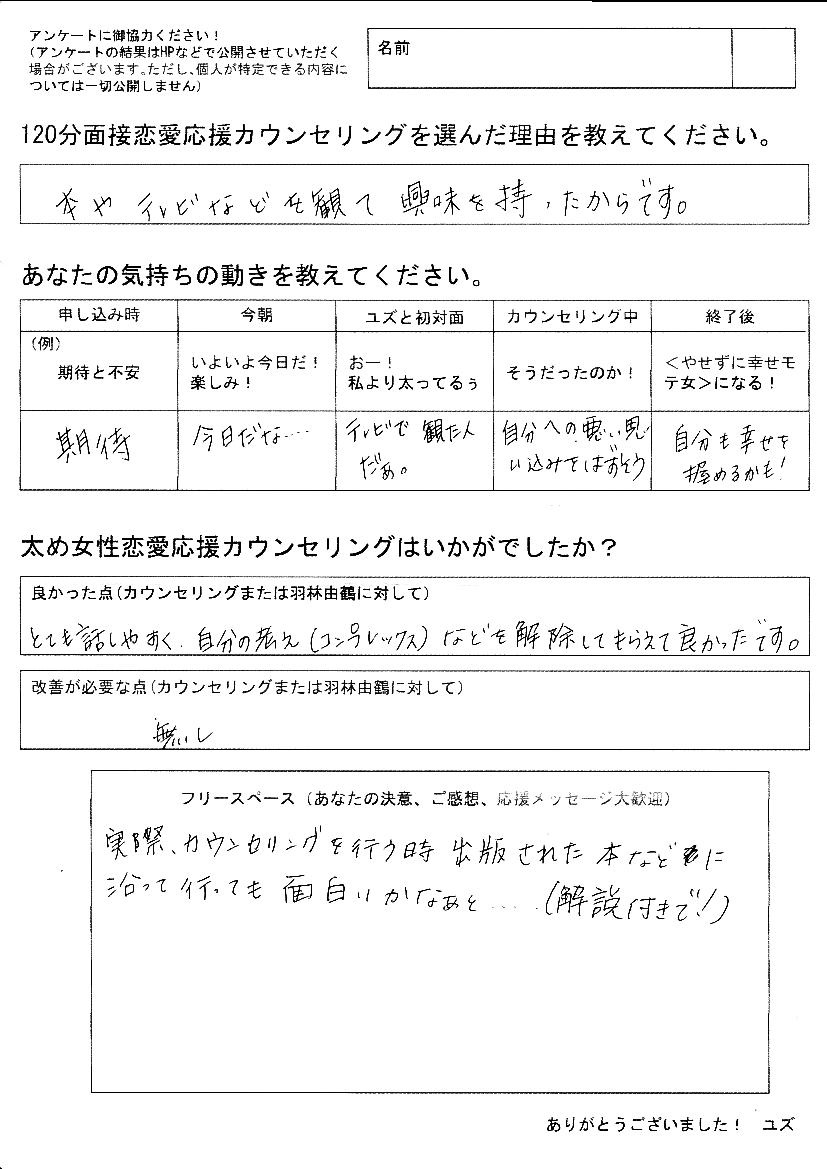 アンケートに御協力ください！
（アンケートの結果はHPなどで公開させていただく
場合がございます。ただし、個人が特定できる内容に
ついては一切公開しません）
名前
120分面接恋愛応援カウンセリングを選んだ理由を教えてください。
本や テレビなどを観て 興味を持ったからです。
あなたの気持ちの動きを教えてください。
申し込み時 今朝 ユズと初対面 カウンセリング中 終了後
（例）
期待と不安
いよいよ今日だ！
楽しみ！
おー！
私より太ってるぅ
そうだったのか！
＜やせずに幸せモ
テ女＞になる！
期待
今日だな……
テレビで 観た人
だぁ。
自分への悪い思
い込みをはずそう
自分も幸せを
握めるかも！
太め女性恋愛応援カウンセリングはいかがでしたか？
良かった点（カウンセリングまたは羽林由鶴に対して）
とても話しやすく、自分の考え（コンプレックス）などを解除してもらえて良かったです。
改善が必要な点（カウンセリングまたは羽林由鶴に対して）
無いし
フリースペース（あなたの決意、ご感想、応援メッセージ大歓迎）
実際、カウンセリングを行う時 出版された 本などに
沿って行っても 面白いかなぁと……（解説付きで！）
ありがとうございました！ ユズ